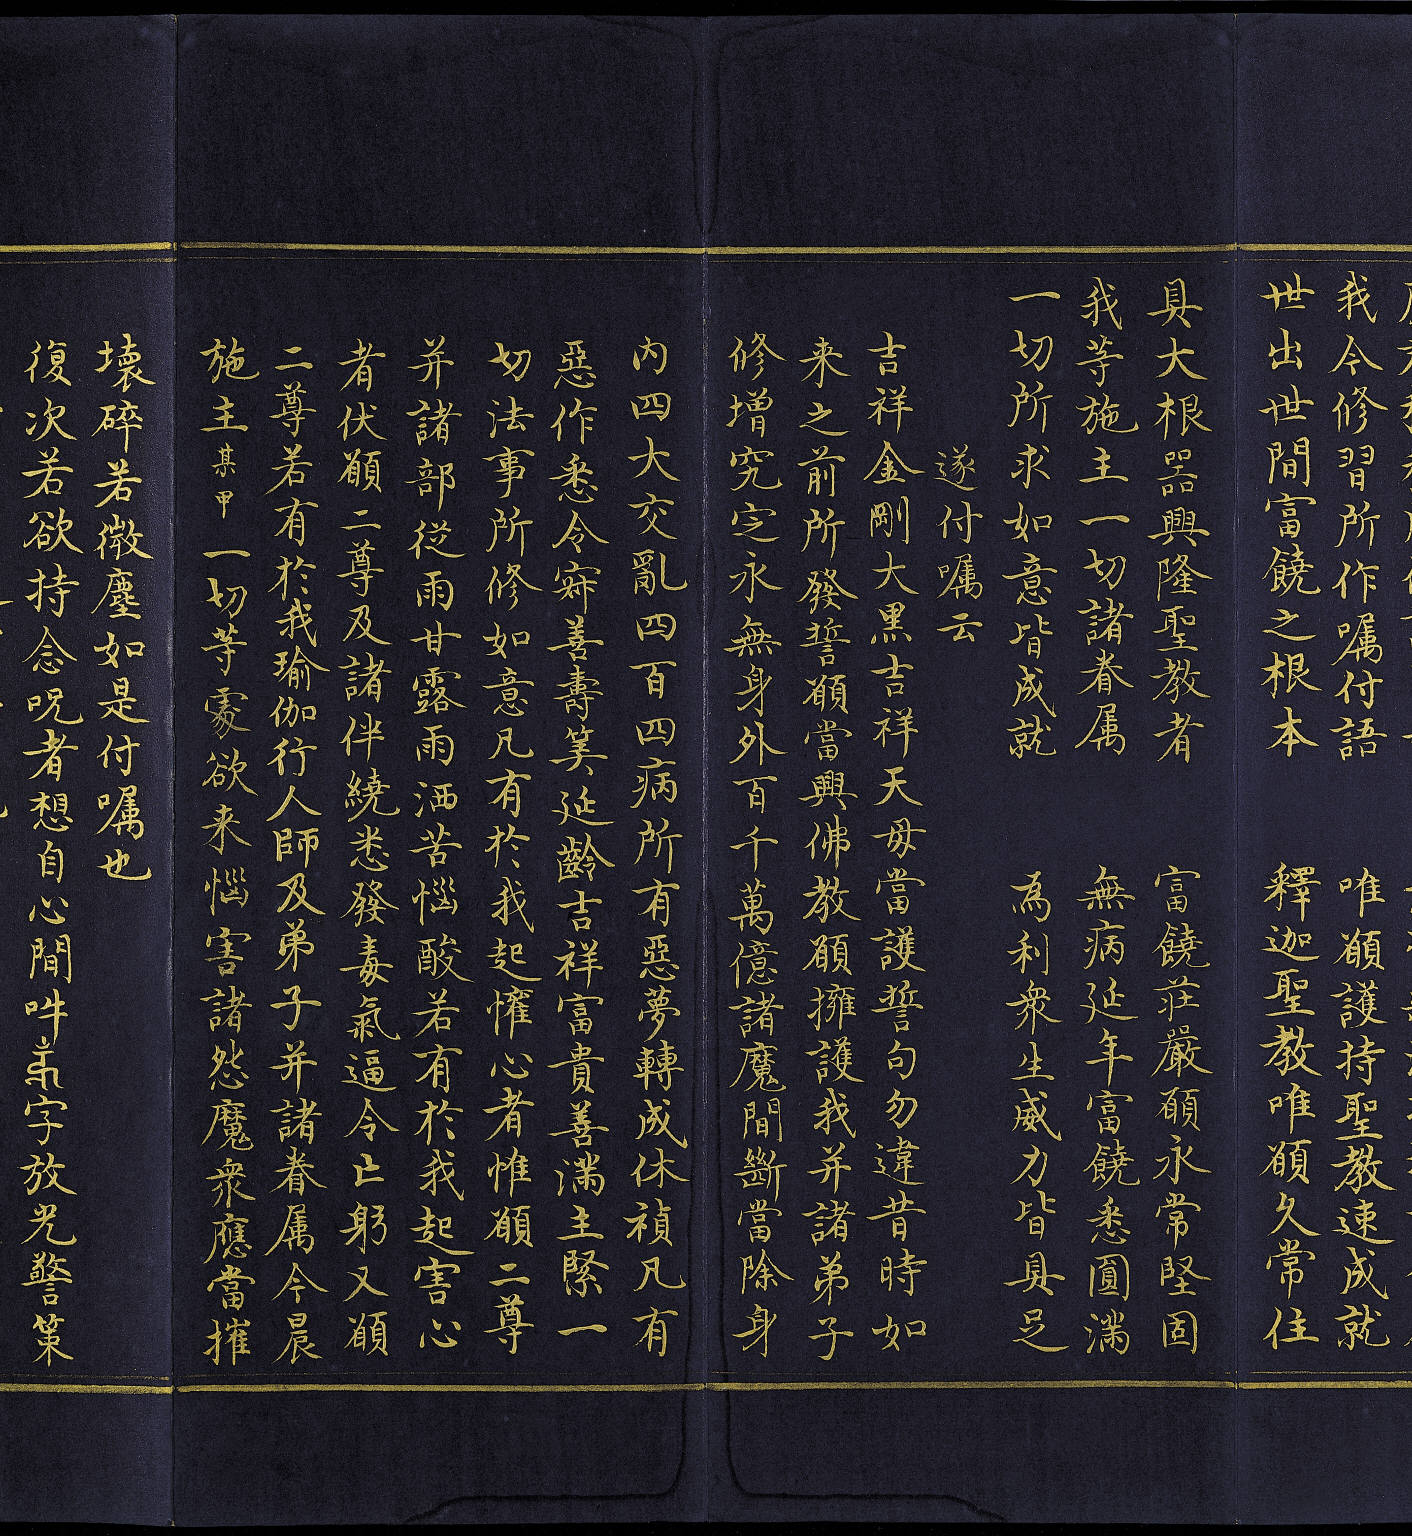 我今修習所作嘱付語 唯願護持聖教速成就
世出世間富饒之根本 釋迦聖教唯願久常住
具大根器興隆聖教者 富饒莊嚴願永常堅固
我等施主一切諸眷属 無病延年富饒悉圓滿
一切所求如意皆成就 為利衆生威力皆具足
遂付嘱云
吉祥金剛大黒吉祥天母當護誓句勿違昔時如
来之前所發誓願當興佛教願擁護我并諸弟子
修增究定永無身外百千萬億諸魔間斷當除身
内四大交亂四百四病所有惡夢轉成休禎凡有
惡作悉令寂善壽筭延齡吉祥富貴善滿主緊一
切法事所修如意凡有於我起懽心者惟願二尊
并諸部從雨甘露雨洒苦惱酸若有於我起害心
者伏願二尊及諸伴繞悉發毒氣逼令亡躬又願
二尊若有於我瑜伽行人師及弟子并諸眷属今晨
施主某甲一切等處欲来惱害諸怨魔衆應當摧
壊碎若微塵如是付嘱也
復次若欲持念呪者想自心間吽字放光警策